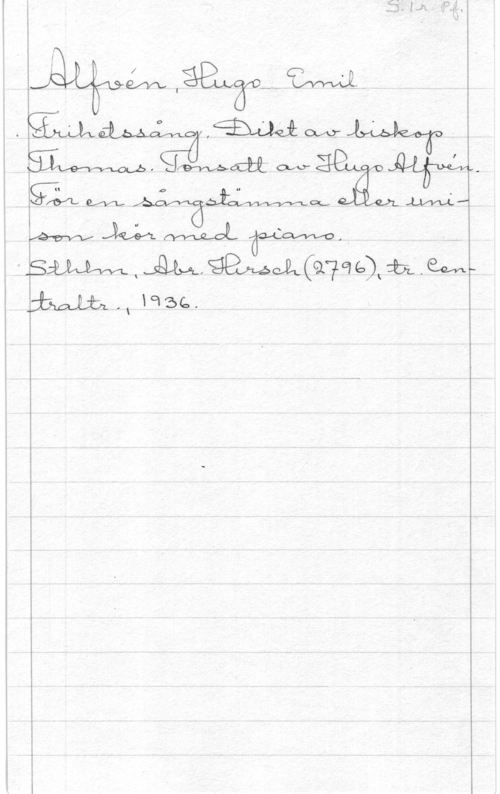 S. 1 r. Pf.
Alfvén, Hugo Emil
Frihetssång. Dikt av biskop
Thomas. Tonsatt av Hugo Alfvén.
För en sångstämma eller uni-
son kör med piano.
Sthlm, Abr. Hirsch (2796), tr. Cen-
traltr., 1936.